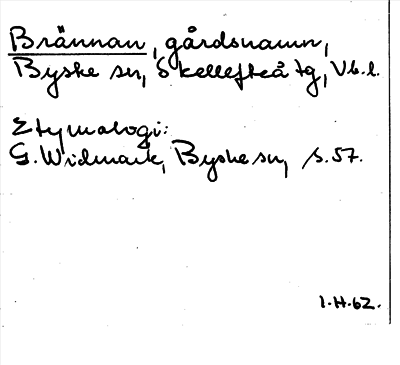 Brännan, gårdsnamn,
Byske sn, Skellefteå tg, Vb.l.
Etymologi:
G. Widmark, Byske sn, s. 57.
I.H.62.